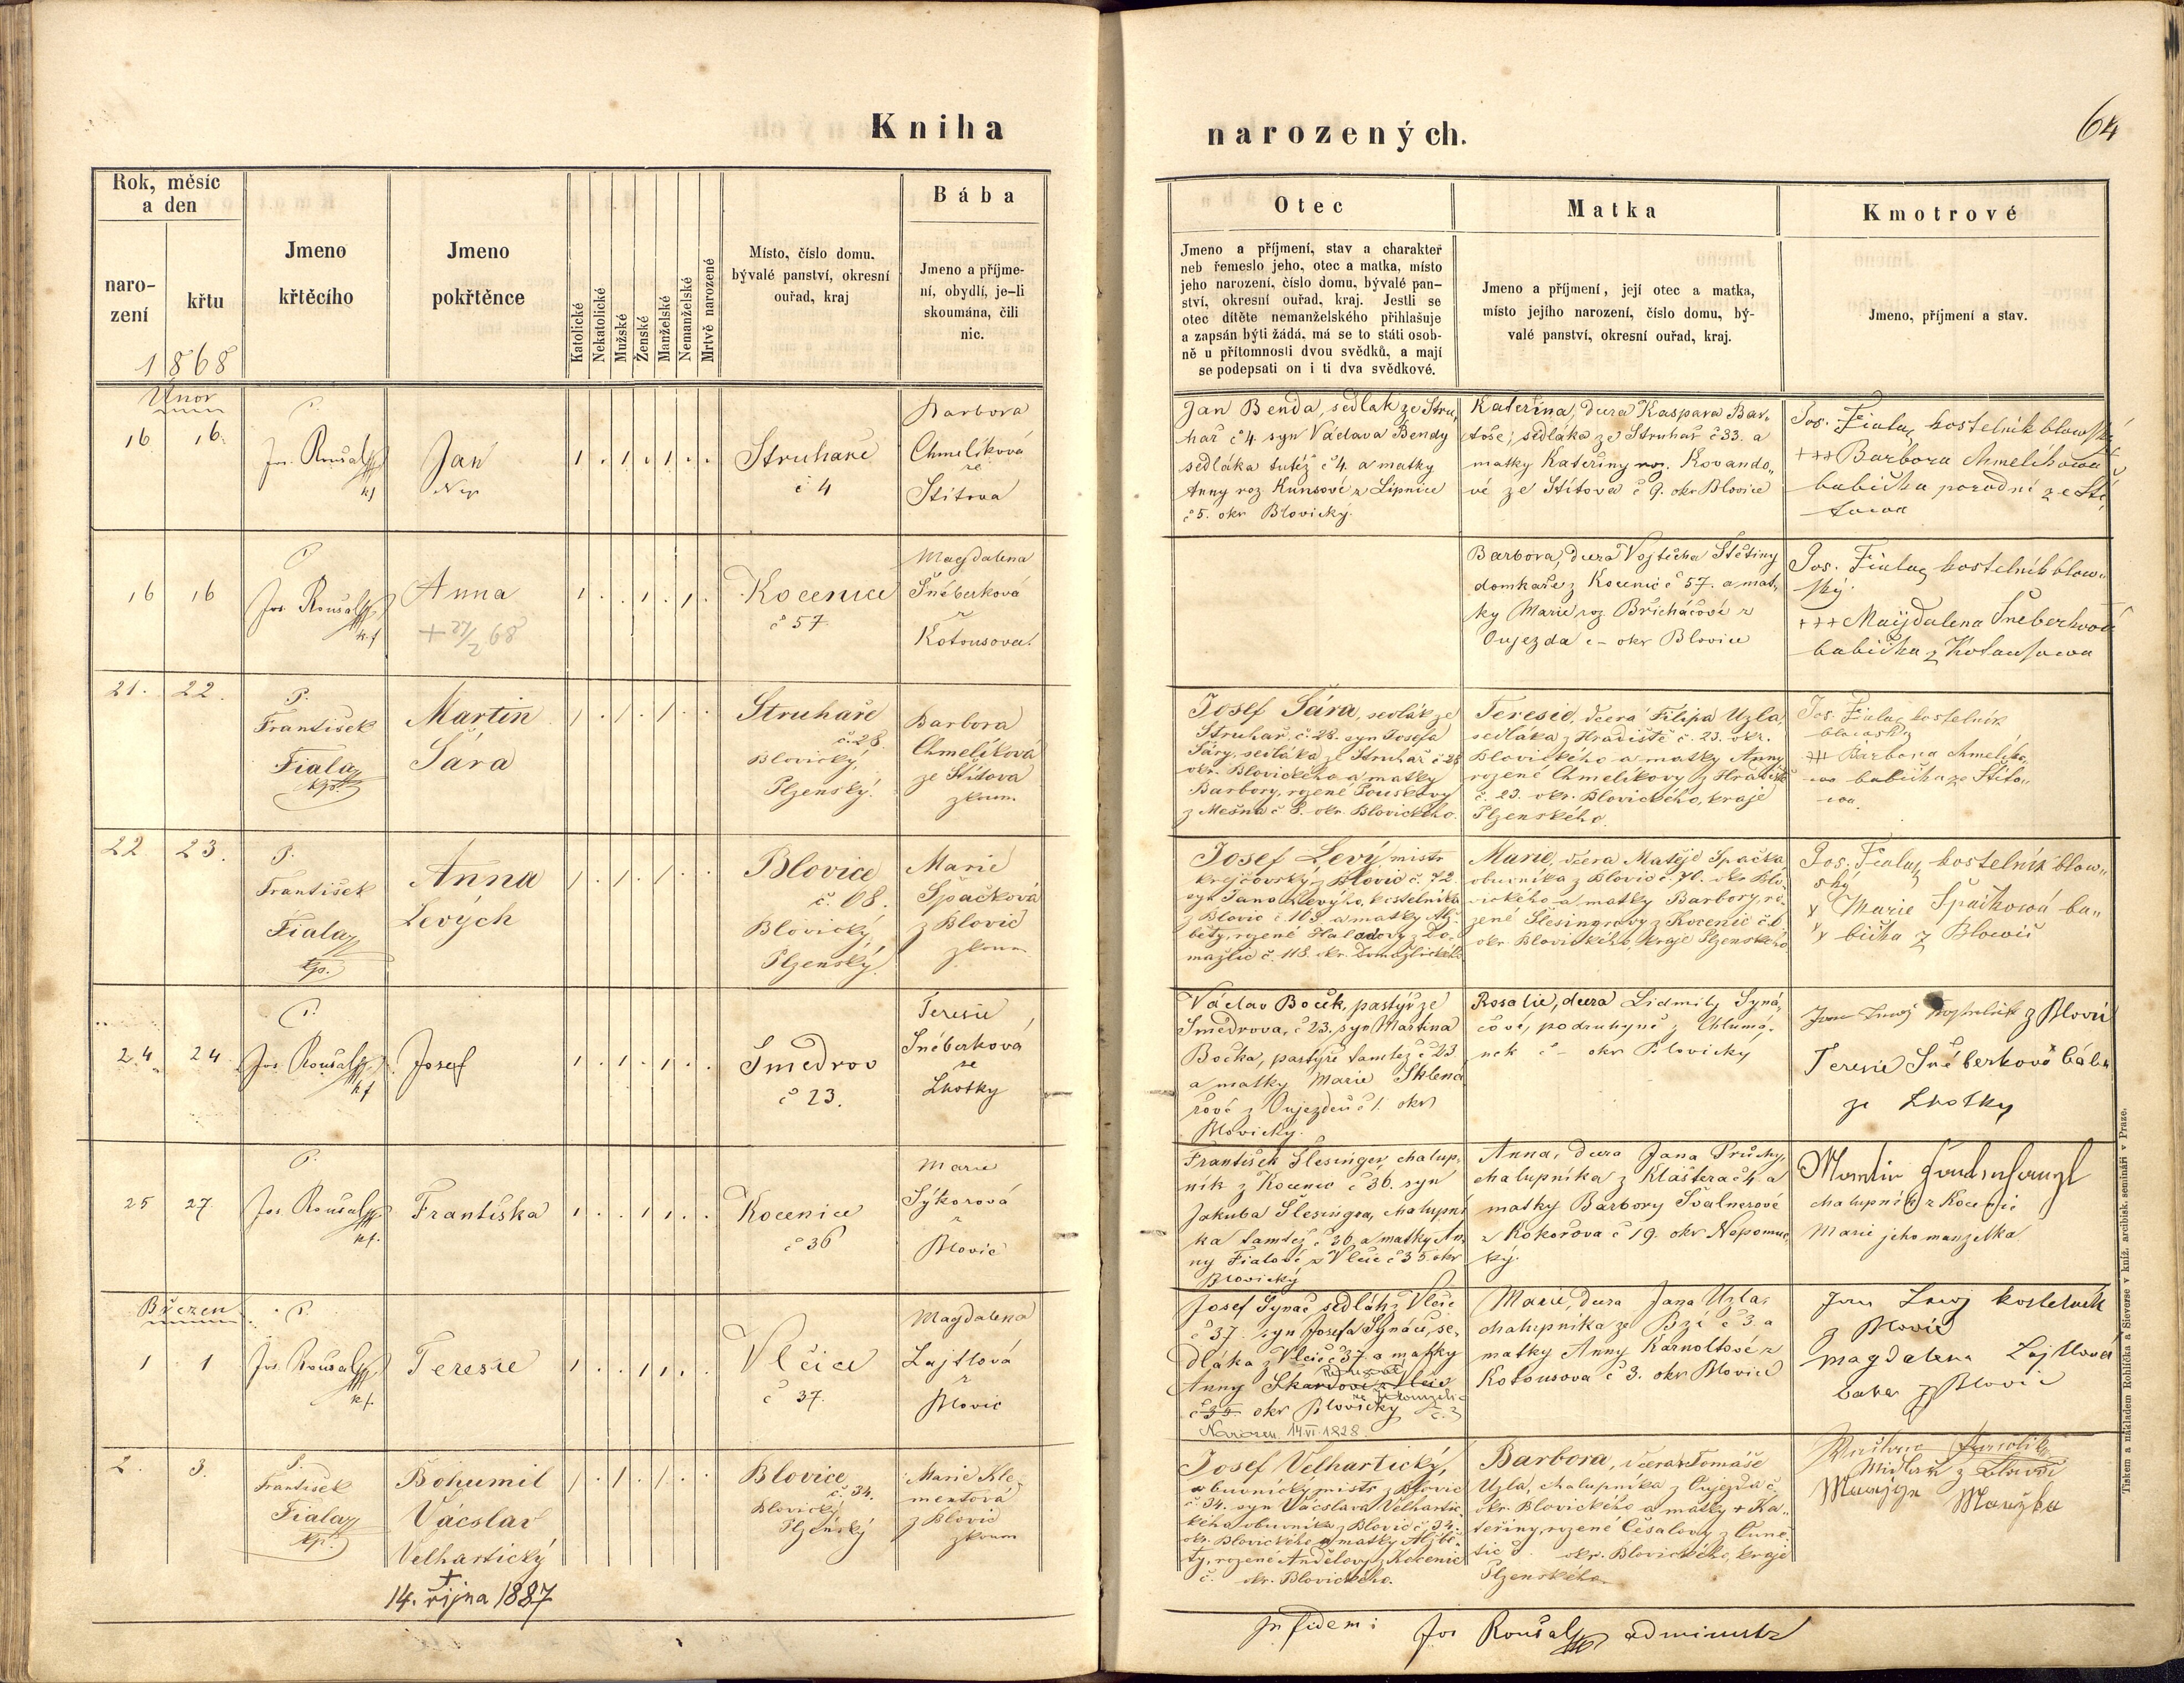 Kniha
narozených.
64
Rok, měsíc
a den
naro-
zení
křtu
1868
Jmeno
křtěcího
Jmeno
pokřtěnce
Katolické
Nekatolické
Mužské
Ženské
Manželské
Nemanželské
Mrtvě narozené
Místo, číslo domu,
bývalé panství, okresní
ouřad, kraj
Bába
Jmeno a příjme-
ní, obydlí, je-li
skoumána, čili
nic.
Otec
Jmeno a příjmení, stav a charakter
neb řemeslo jeho, otec a matka, místo
jeho narození, číslo domu, bývalé pan-
ství, okresní ouřad, kraj. Jestli se
otec dítěte nemanželského přihlašuje
a zapsán býti žádá, má se to státi osob-
ně u přítomnosti dvou svědků, a mají
se podepsati on i ti dva svědkové.
Matka
Jmeno a příjmení, její otec a matka,
místo jejího narození, číslo domu, bý-
valé panství, okresní ouřad, kraj.
Kmotrové
Jmeno, příjmení a stav.
Únor
16 16.
P.
Jos. Roušal
kf
Jan
Nep
Struhaře
č 4
Barbora
Chmelíková
ze
Štítova
Jan Benda, sedlák ze Stru,
hař č 4. syn Václava Bendy
sedláka tutéž č 4. a matky
Anny roz Kunsové z Lipnice
č 5. okr Blovický.
Kateřina, dcera Kaspara Bar-
toše, sedláka ze Struhař č 33. a
matky Kateřiny roz. Kovando,,
vé ze Štítova č 9. okr Blovice
Jos. Fiala, kostelník blowský
+++ Barbora Chmelikowa
babička porodní ze Ští
towa
16 16
P.
Jos. Roušal
kf
Anna
Kocenice
č 57
Magdalena
Šnéberková
z
Kotousova
Barbora, dcera Vojtěcha Štětiny
domkaře z Kocenic č 57. a mat,
ky Marie roz. Břicháčové z
Oujezda č - okr Blovice
Jos. Fiala, kostelník blow,,
ský.
+++ Magdalena Šneberkova
babička z Kotausowa
21. 22.
P.
František
Fiala
kp.
Martin
Šára
Struhaře
č. 28.
Blovický,
Plzenský.
Barbora
Chmelíková
ze Štítova
zkoum
Josef Šára, sedlák ze
Struhař. č. 28. syn Josefa
Šáry, sedláka ze Struhař č 28
okr. Blovického a matky
Barbory, rozené Pouskovy
z Mešna č 8. okr. Blovického.
Teresie, dcera Filipa Uzla,
sedláka z Hradiště č. 23. okr.
Blovického a matky Anny
rozené Chmelíkovy z Hradiště
č. 23. okr. Blovického, kraje
Plzenského.
Jos. Fiala, kostelník
blowský
+++ Barbora Chmelíko,,
wa babička ze Štíto,,
wa.
22 23.
P.
František
Fiala
kp.
Anna
Levých
Blovice
č. 68.
Blovický,
Plzenský
Marie
Špačková
z Blovic
zkoum
Josef Levý mistr
krejčovský z Blovic č. 72.
syn Jana Levýho, kostelníka
z Blovic č 103 a matky Alž-
běty, rozené Haladovy z Do-
mažlic č. 118. okr. Domažlického
Marie, dcera Matěje Špačka
obuvníka z Blovic č. 70. okr Blo-
vického a matky Barbory, ro-
zené Šlesingrovy z Kocenic č. 6
okr. Blovického, kraje Plzenského
Jos. Fiala, kostelník blow,,
ský
x Marie Špačkowá ba,,
x x bička z Blowic
24. 24.
P.
Jos. Roušal
kf
Josef
Smedrov
č 23.
Teresie
Šnéberková
ze
Lhotky
Václav Boček, pastýř ze
Smedrova, č 23. syn Martina
Bočka, pastýře tamtéž č 23
a matky Marie Sklená
řové z Oujezda č 1. okr
Blovický.
Rosalie, dcera Lidmily Syná,
čové, podruhyně z Chlumá,
nek č - okr Blovický
z Blovic
Teresie Šnéberková bába
ze Lhotky
25 27
P.
Jos. Roušal
kf.
Františka
Kocenice
č 36
Marie
Sýkorová
z
Blovic
František Šlesinger, chalup,
ník z Kocenic č 36. syn
Jakuba Šlesingra, chalupní
ka tamtéž č 36, a matky An
ny Fialové z Vlčic č 35. okr
Blovický
Anna, dcera Jana Průchy,
chalupníka z Kláštera č 4. a
matky Barbory Švalnerové
z Kokořova č 19. okr Nepomuc,
ký.
Martin
chalupník z Kocenic
Marie jeho manzelka
Březen
1 1
P.
Jos. Roušal
kf.
Teresie
Vlčice
č 37.
Magdalena
Lajtlová
z
Blovic
Josef Synáč sedlák z Vlčic
č 37. syn Josefa Synáče, se,
dláka z Vlčic č 37. a matky
Anny Skardové z Vlčic
č 35 okr Blovický č. 3
Narozen. 14.VI.1828.
Marie, dcera Jana Uzla,
chalupníka ze Bzí č 3. a
matky Anny Karnoltové z
Kotousova č 3. okr Blovice
Jan Lewý kostelník
z Blovic
Magdalena Lajtlová
baba z Blovic
2. 3.
P.
František
Fiala
kp.
Bohumil
Vácslav
Velhartický
+
14. října 1887
Blovice
č. 34.
Blovický
Plzenský
Marie Kle-
mentová
z Blovic
zkoum
Josef Velhartický,
obuvnický mistr z Blovic
č. 34. syn Vácslava Velhartic-
kého obuvníka z Blovic č. 34.
okr. Blovického a matky Alžbě-
ty, rozené Andělovy z Kocenic
č. okr. Blovického.
Barbora, dcera Tomáše
Uzla, chalupníka z Oujezda č.
okr. Blovického a matky + Ka-
teřiny, rozené Česalovy z Čune
tic č. okr. Blovického, kraje
Plzenského.
z Blowic
Manžka
In fidem: Jos Roušal administr
Tiskem a nákladem Rohlíčka a Sieverse v kníž. arcibisk. semináři v Praze.